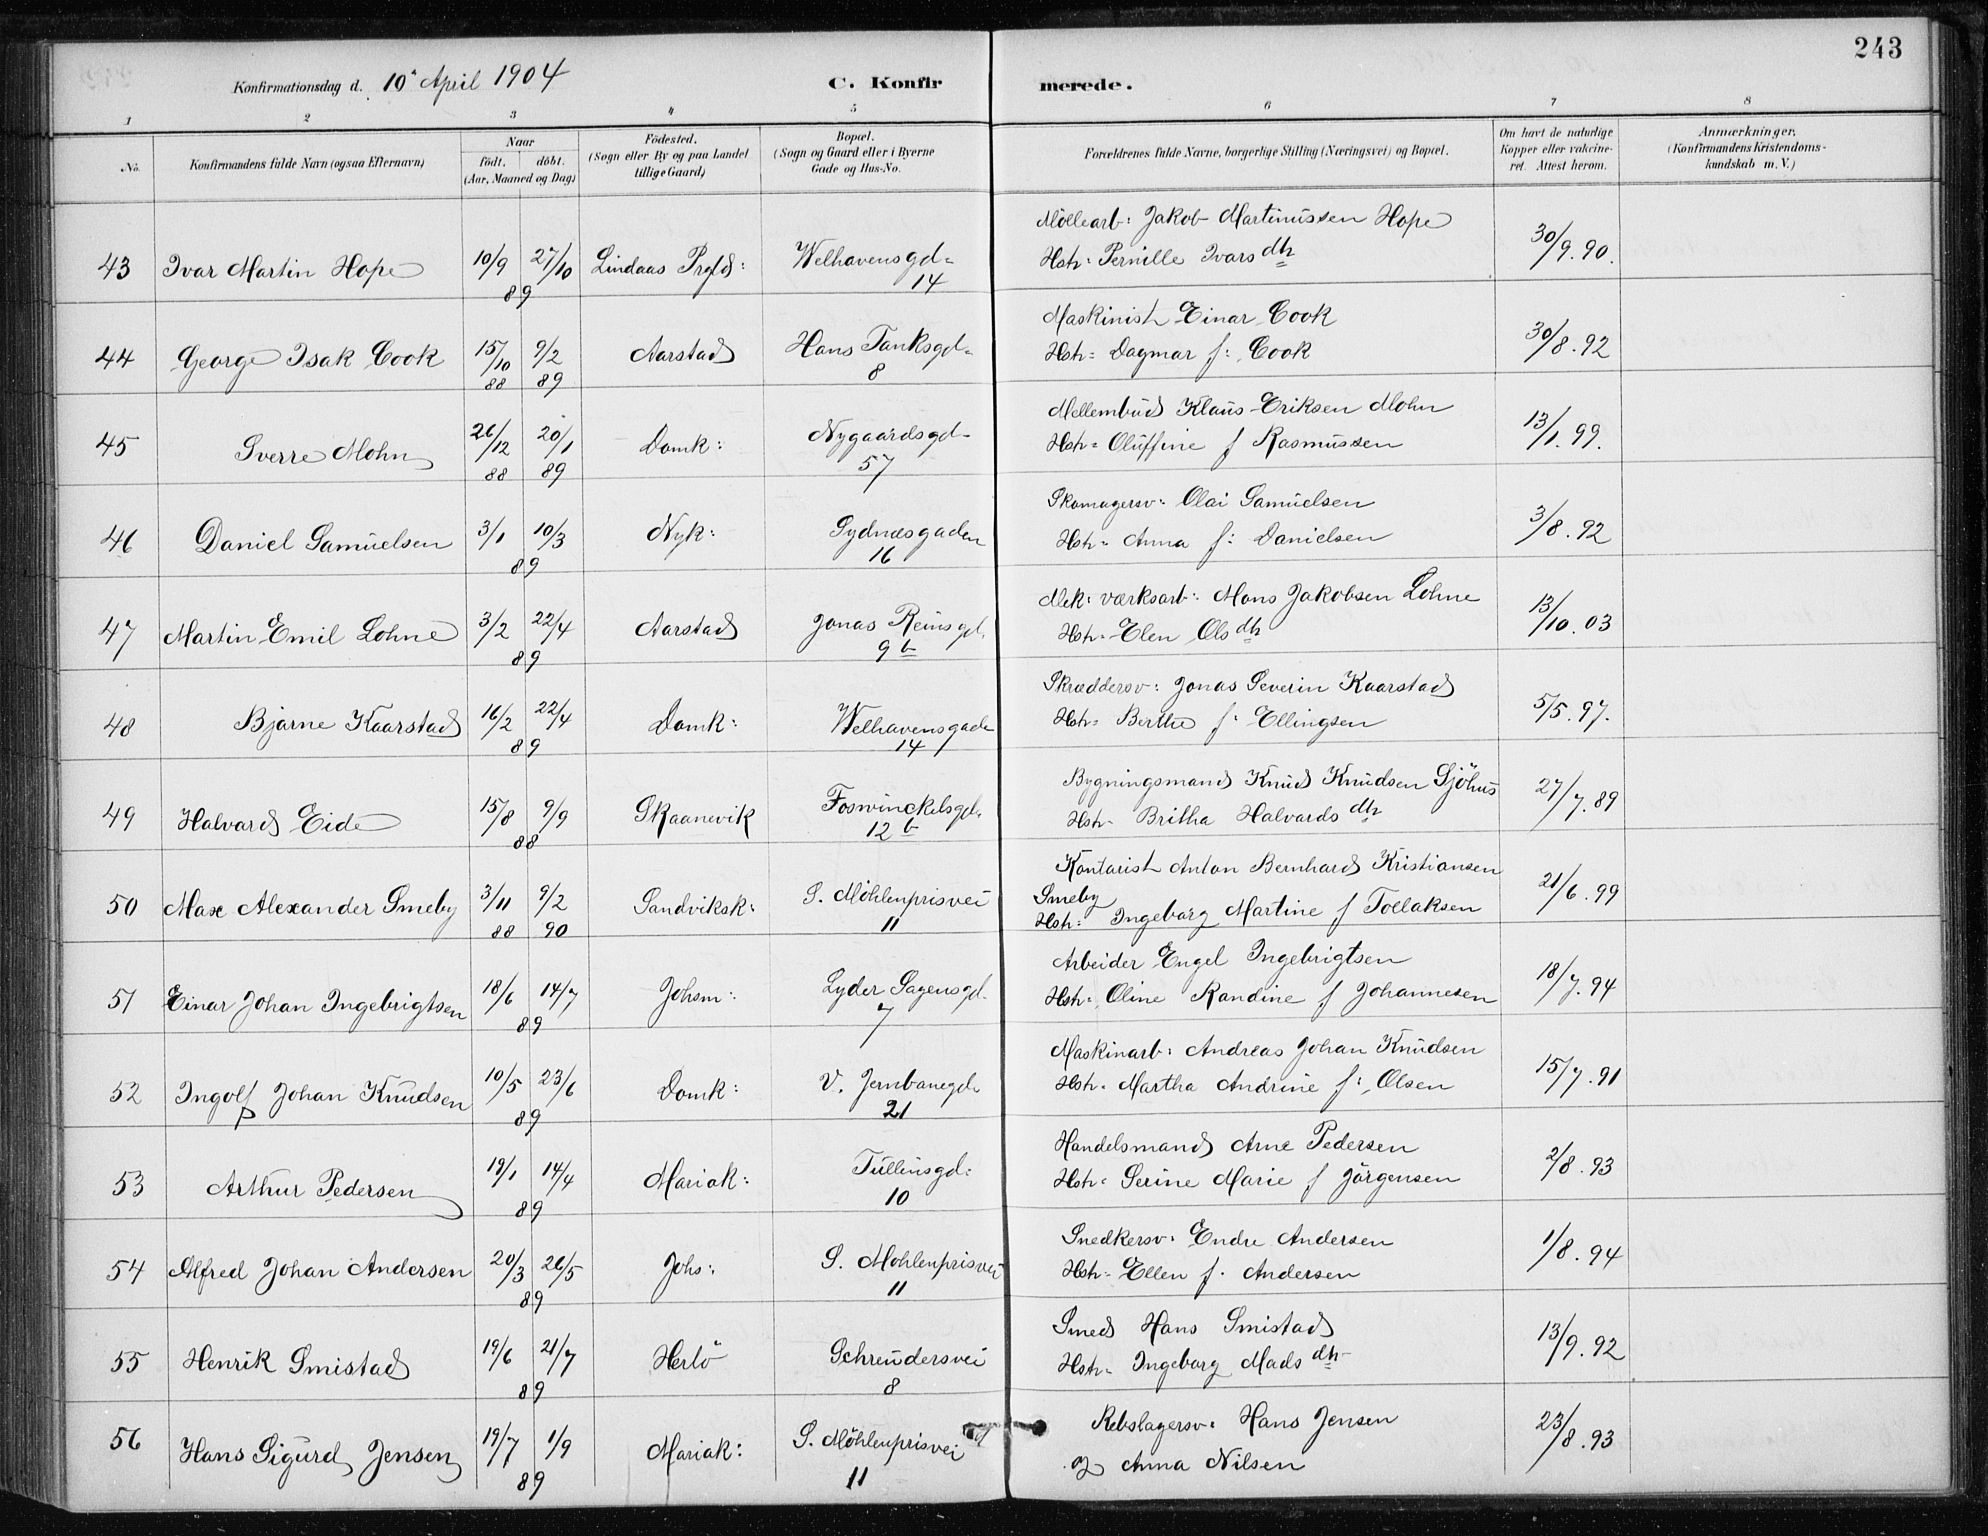 243
Konfirmationsdag d. 10 April 1904 C. Konfirmerede.
1 2 3 4 5 6 7 8
No. Konfirmandens fulde Navn (ogsaa Efternavn) Naar födt. döbt. (Aar, Maaned og Dag) Födested. (Sogn eller By og paa Landet tillige Gaard) Bopæl. (Sogn og Gaard eller i Byerne Gade og Hus-No. Forældrenes fulde Navne, borgerlige Stilling (Næringsvei) og Bopæl. Om havt de naturlige Kopper eller vakcineret. Attest herom. Anmærkninger. (Konfirmandens Kristendomskundskab m. V.)
Möllearb: Jakob Martinussen Hope
43 Ivar Martin Hope 10/9 27/10 89 Lindaas Prgld: Welhavensgd. 14 Hstr: Pernille Ivarsdtr 30/9.90.
Maskinist Einar Cook
44 George Isak Cook 15/10 88 9/2 89 Aarstad Hans Tanksgd. 8 Hstr: Dagmar f: Cook 30/8.92
Mellembud Klaus Eriksen Mohn
45 Sverre Mohn 26/12 88 20/1 89 Domk: Nygaardsgd. 57 Hstr: Oluffine f Rasmussen 13/1.99.
Skomagersv: Olai Samuelsen
46 Daniel Samuelsen 3/1 10/3 89 Nyk: Sydnæsgaden 16 Hstr: Anna f: Danielsen 3/8.92
Mek: værksarb: Mons Jakobsen Lohne
47 Martin Emil Lohne 3/2 22/4 89 Aarstad Jonas Reinsgd. 9 b Hstr: Elen Olsdtr 13/10.03
Skræddersv: Jonas Severin Kaarstad
48 Bjarne Kaarstad 16/2 22/4 89 Domk: Welhavensgade 14 Hstr: Berthe f: Ellingsen 5/5.97.
Bygningsmand Knud Knudsen Sjöhus
49 Halvard Eide 15/8 9/9 88 Skaanevik Foswinckelsgd. 12 b Hstr: Britha Halvardsdtr 27/7.89
Kontorist Anton Bernhard Kristiansen
50 Max Alexander Smeby 3/11 88 9/2 90 Sandviksk: S. Möhlenprisvei 11 Smeby Hstr: Ingeborg Martine f Tollaksen 21/6.99
Arbeider Engel Ingebrigtsen
51 Einar Johan Ingebrigtsen 18/6 14/7 89 Johsm: Lyder Sagensgd. 7 Hstr: Oline Randine f Johannesen 18/7.94
Maskinarb: Andreas Johan Knudsen
52 Ingolf Johan Knudsen 10/5 23/6 89 Domk: V. Jernbanegd. 21 Hstr: Martha Andrine f: Olsen 15/7.91
Handelsmand Arne Pedersen
53 Arthur Pedersen 19/1 14/4 89 Mariak: Tullinsgd: 10 Hstr: Serine Marie f Jörgensen 2/8.93
Snedkersv: Endre Andersen
54 Alfred Johan Andersen 20/3 26/5 89 Johs: S. Mohlenprisvei 11 Hstr: Ellen f. Andersen 1/8.94
Smed Hans Smistad
55 Henrik Smistad 19/6 21/7 89 Herlö Schreudersvei 8 Hstr: Ingeborg Madsdtr 13/9.92
Rebslagersv: Hans Jensen
56 Hans Sigurd Jensen 19/7 1/9 89 Mariak: S. Möhlenprisvei 11 og Anna Nilsen 23/8.93